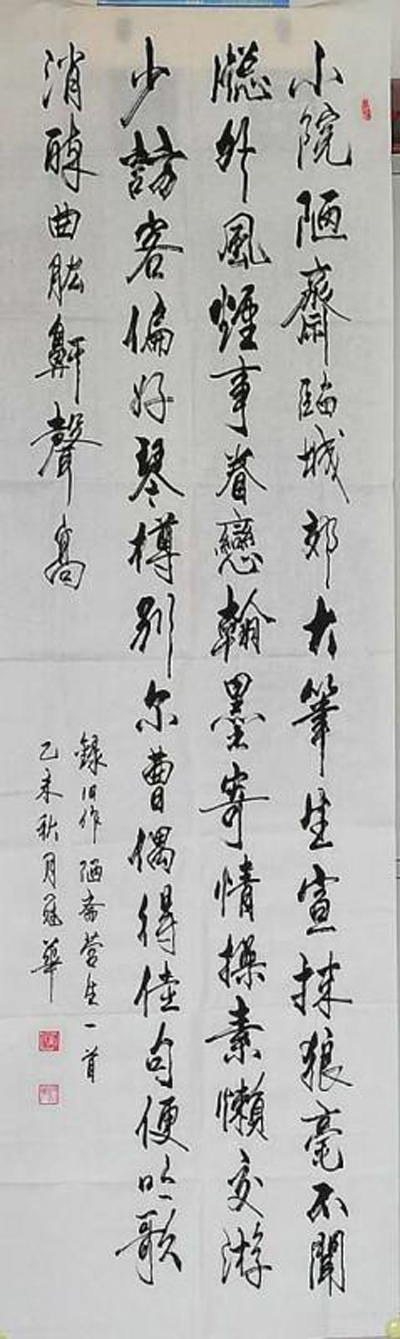 小院陋齋臨城郊大筆生宣抹狼毫不聞
牕外風煙事眷戀翰墨寄情操素懶交游
少訪客偏好琴樽別尔曹偶得佳句便吟歌
消醉曲肱鼾聲高
録旧作陋斋营生一首
乙未秋月冠華